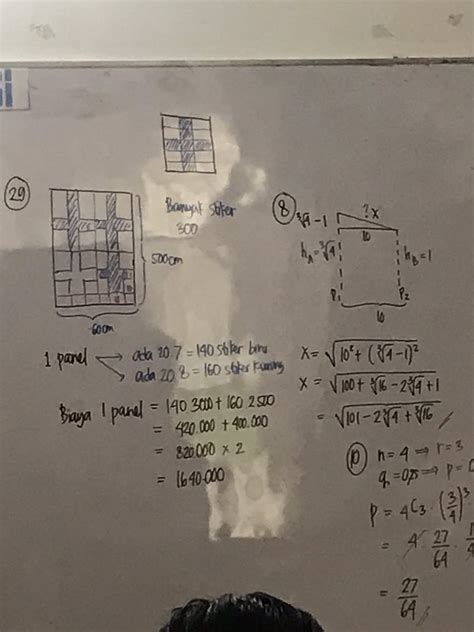 29
Banyak stiker
300
500cm
60cm
1 panel
ada 20.7 = 140 stiker biru
ada 20.8 = 160 stiker kuning
Biaya 1 panel = 140.3000 + 160.2500
= 420.000 + 400.000
= 820.000 × 2
= 1.640.000
8
∛4 - 1
? x
10
hA = ∛4
hB = 1
P1
P2
10
x = √(10² + (∛4 - 1)²)
x = √(100 + ∛16 - 2∛4 + 1)
= √(101 - 2∛4 + ∛16)
10
n = 4 → r = 3
q = 0,25 → p = 0
P = 4C3 · (3/4)³
= 4 · 27/64 · 1/4
= 27/64